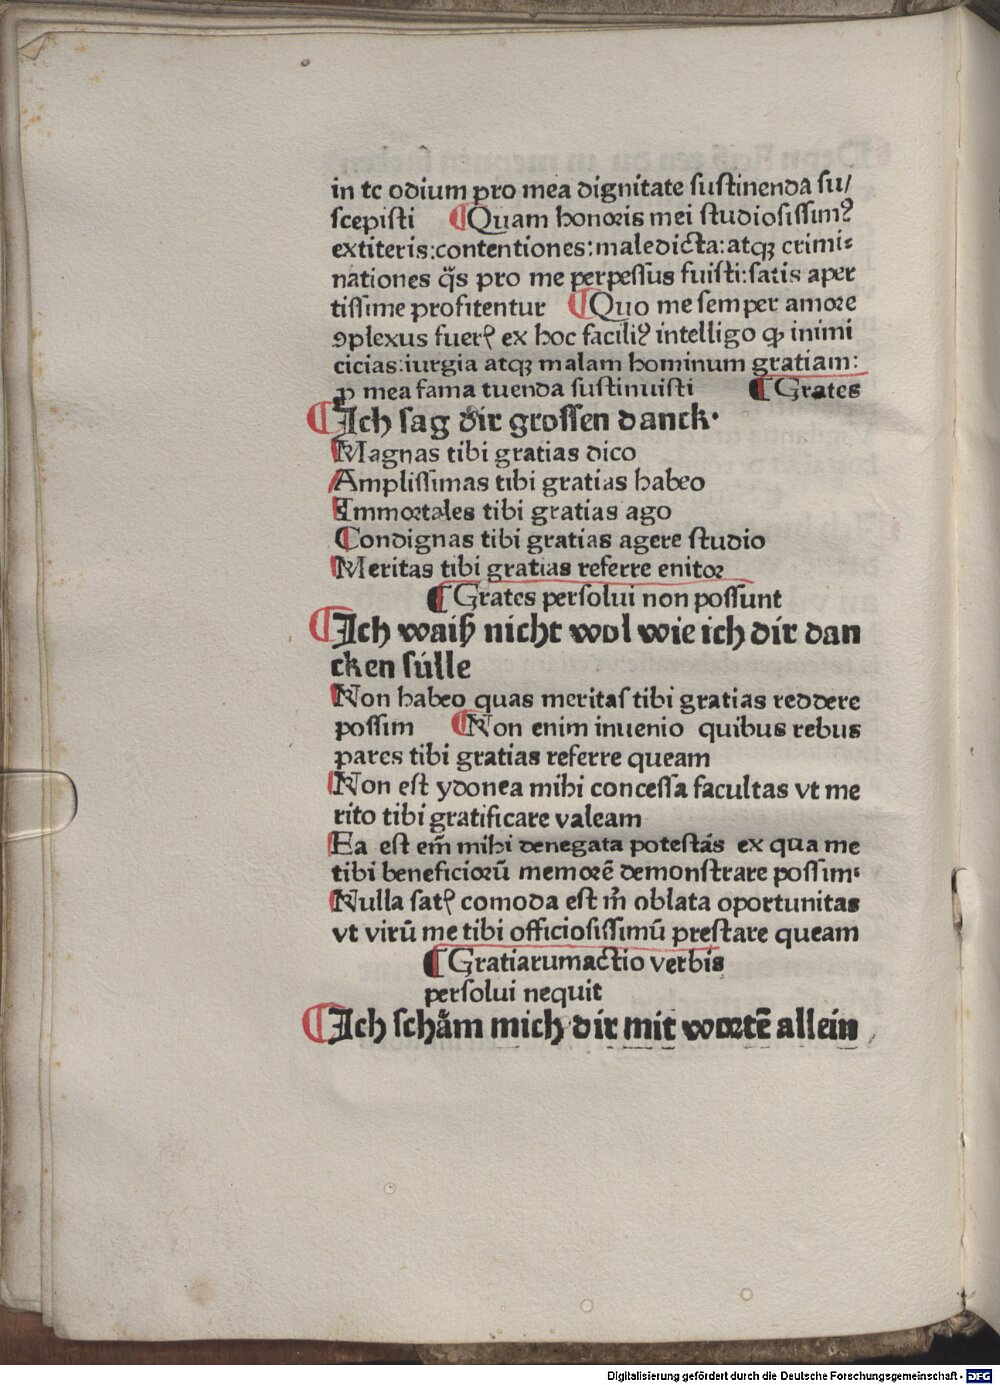 in te odium pro mea dignitate ſuſtinenda ſu/
ſcepiſti ¶Quam honoꝛis mei ſtudioſiſſimꝰ
extiteris:contentiones:maledicta:atqꝫ crimi⸗
nationes q̃s pro me perpeſſus fuiſti:ſatis aper
tiſſime profitentur ¶Quo me ſemper amoꝛe
ꝯplexus fuerꝭ ex hoc faciliꝰ intelligo ꝙ inimi
cicias:iurgia atqꝫ malam hominum gratiam:
ꝓ mea fama tuenda ſuſtinuiſti ¶Grates
¶Ich ſag dir groſſen danck·
Magnas tibi gratias dico
Ampliſſimas tibi gratias habeo
Immoꝛtales tibi gratias ago
Condignas tibi gratias agere ſtudio
Meritas tibi gratias referre enitoꝛ
¶Grates perſolui non poſſunt
¶Ich waiß nicht wol wie ich dir dan
cken ſúlle
Non habeo quas meritaſ tibi gratias reddere
poſſim ¶Non enim inuenio quibus rebus
pares tibi gratias referre queam
Non eſt ydonea mihi conceſſa facultas vt me
rito tibi gratificare valeam
Ea eſt em̃ mihi denegata poteſtas ex qua me
tibi beneficioꝛũ memoꝛẽ demonſtrare poſſim·
Nulla ſatꝭ comoda eſt m̃ oblata opoꝛtunitas
vt virũ me tibi officioſiſſimũ preſtare queam
¶Gratiarumactio verbis
perſolui nequit
¶Ich ſchåm mich dir mit woꝛtẽ allein
Digitalisierung gefördert durch die Deutsche Forschungsgemeinschaft - DFG